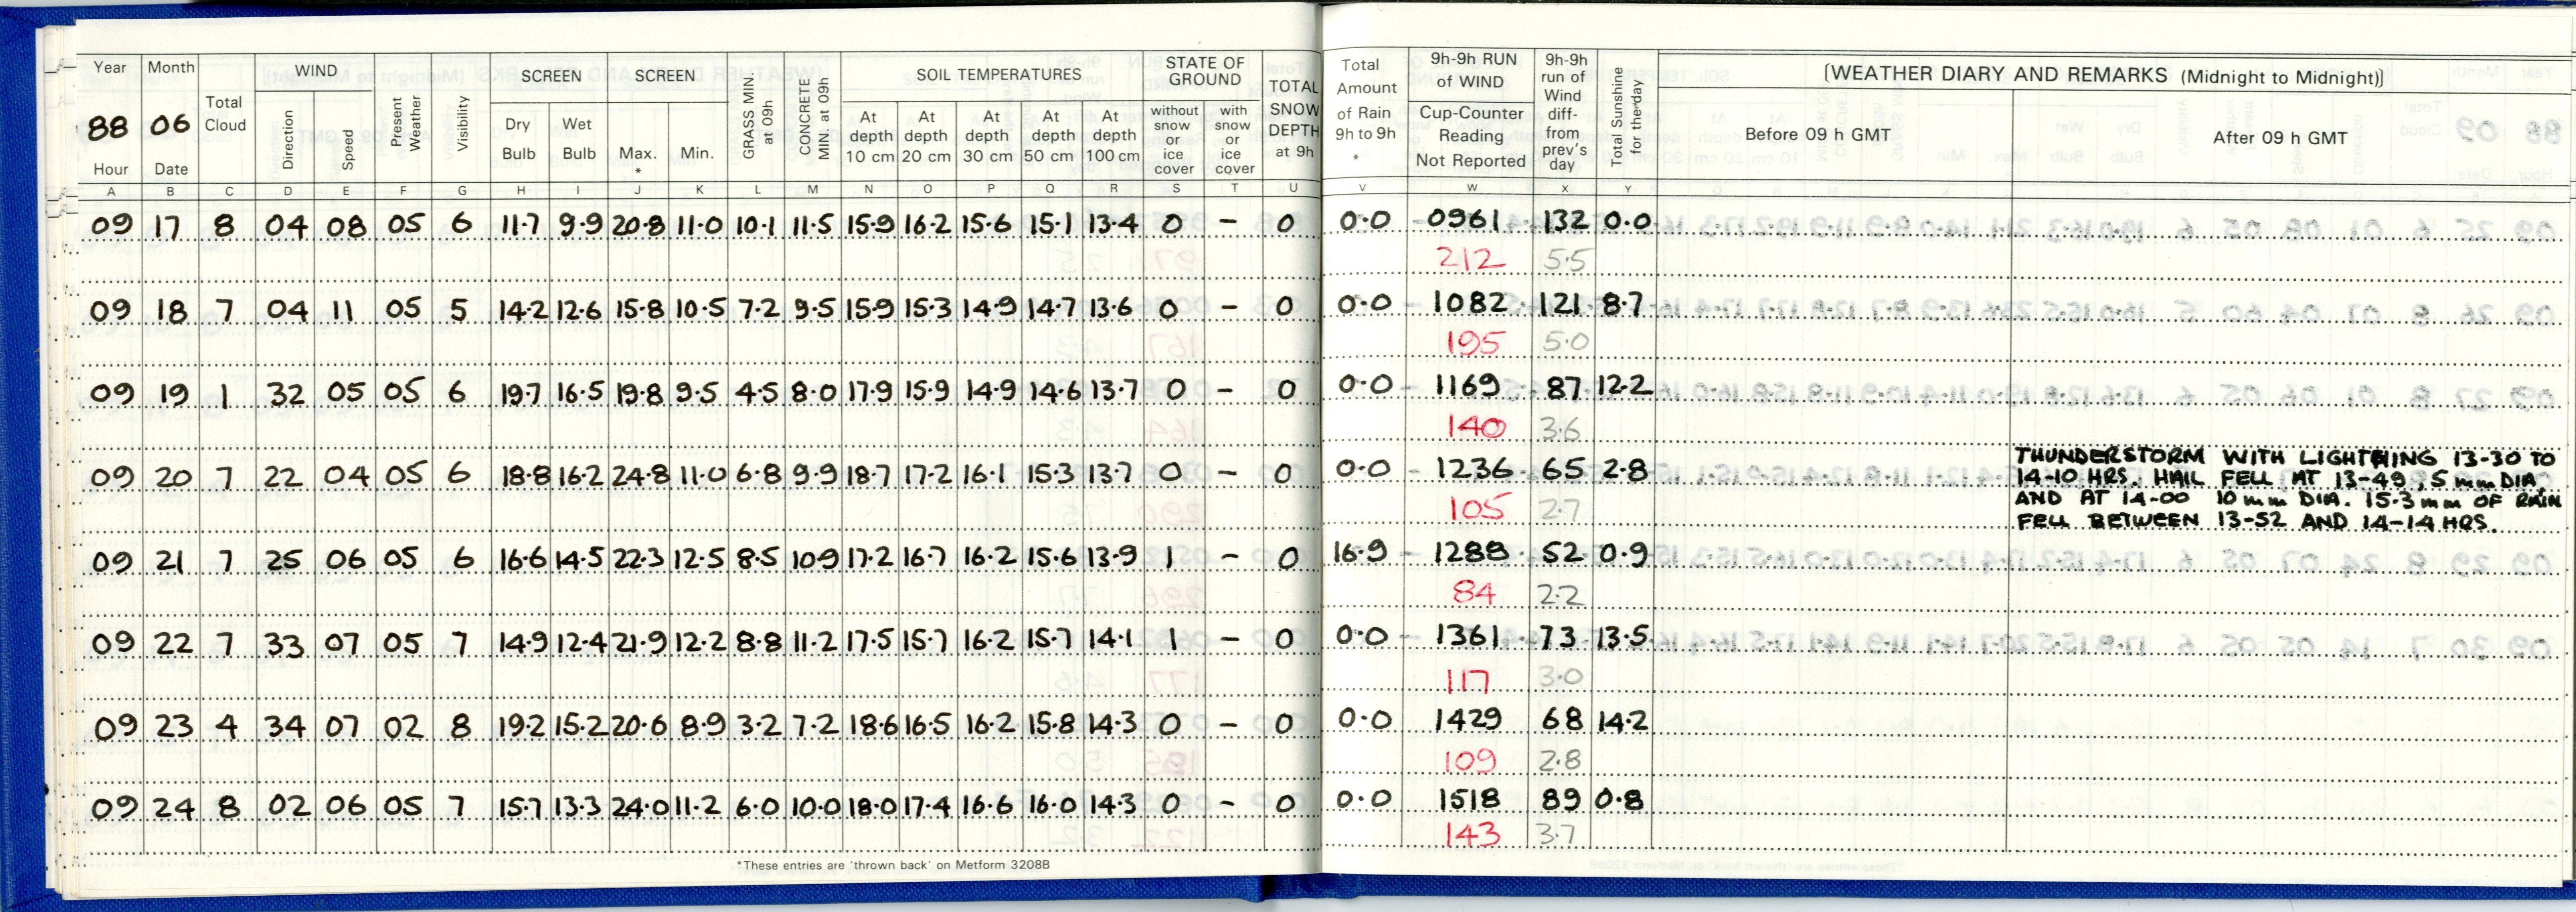 Year Month Total Cloud WIND Present Weather Visibility SCREEN SCREEN GRASS MIN. at 09h CONCRETE MIN. at 09h SOIL TEMPERATURES STATE OF GROUND TOTAL SNOW DEPTH at 9h Total Amount of Rain 9h to 9h * 9h-9h RUN of WIND 9h-9h run of Wind diff- from prev's day Total Sunshine for the day [WEATHER DIARY AND REMARKS (Midnight to Midnight)]
88 06 Direction Speed Dry Bulb Wet Bulb Max. * Min. At depth 10 cm At depth 20 cm At depth 30 cm At depth 50 cm At depth 100 cm without snow or ice cover with snow or ice cover Cup-Counter Reading Not Reported Before 09 h GMT After 09 h GMT
Hour Date
A B C D E F G H I J K L M N O P Q R S T U V W X Y
09 17 8 04 08 05 6 11·7 9·9 20·8 11·0 10·1 11·5 15·9 16·2 15·6 15·1 13·4 0 – 0 0·0 0961 132 0·0
212 5·5
09 18 7 04 11 05 5 14·2 12·6 15·8 10·5 7·2 9·5 15·9 15·3 14·9 14·7 13·6 0 – 0 0·0 1082 121 8·7
195 5·0
09 19 1 32 05 05 6 19·7 16·5 19·8 9·5 4·5 8·0 17·9 15·9 14·9 14·6 13·7 0 – 0 0·0 1169 87 12·2
140 3·6
09 20 7 22 04 05 6 18·8 16·2 24·8 11·0 6·8 9·9 18·7 17·2 16·1 15·3 13·7 0 – 0 0·0 1236 65 2·8
THUNDERSTORM WITH LIGHTNING 13-30 TO
14-10 HRS. HAIL FELL AT 13-49, 5 mm DIA
AND AT 14-00 10 mm DIA. 15·3 mm OF RAIN
FELL BETWEEN 13-52 AND 14-14 HRS.
105 2·7
09 21 7 25 06 05 6 16·6 14·5 22·3 12·5 8·5 10·9 17·2 16·7 16·2 15·6 13·9 1 – 0 16·9 1288 52 0·9
84 2·2
09 22 7 33 07 05 7 14·9 12·4 21·9 12·2 8·8 11·2 17·5 15·7 16·2 15·7 14·1 1 – 0 0·0 1361 73 13·5
117 3·0
09 23 4 34 07 02 8 19·2 15·2 20·6 8·9 3·2 7·2 18·6 16·5 16·2 15·8 14·3 0 – 0 0·0 1429 68 14·2
109 2·8
09 24 8 02 06 05 7 15·7 13·3 24·0 11·2 6·0 10·0 18·0 17·4 16·6 16·0 14·3 0 – 0 0·0 1518 89 0·8
143 3·7
*These entries are 'thrown back' on Metform 3208B